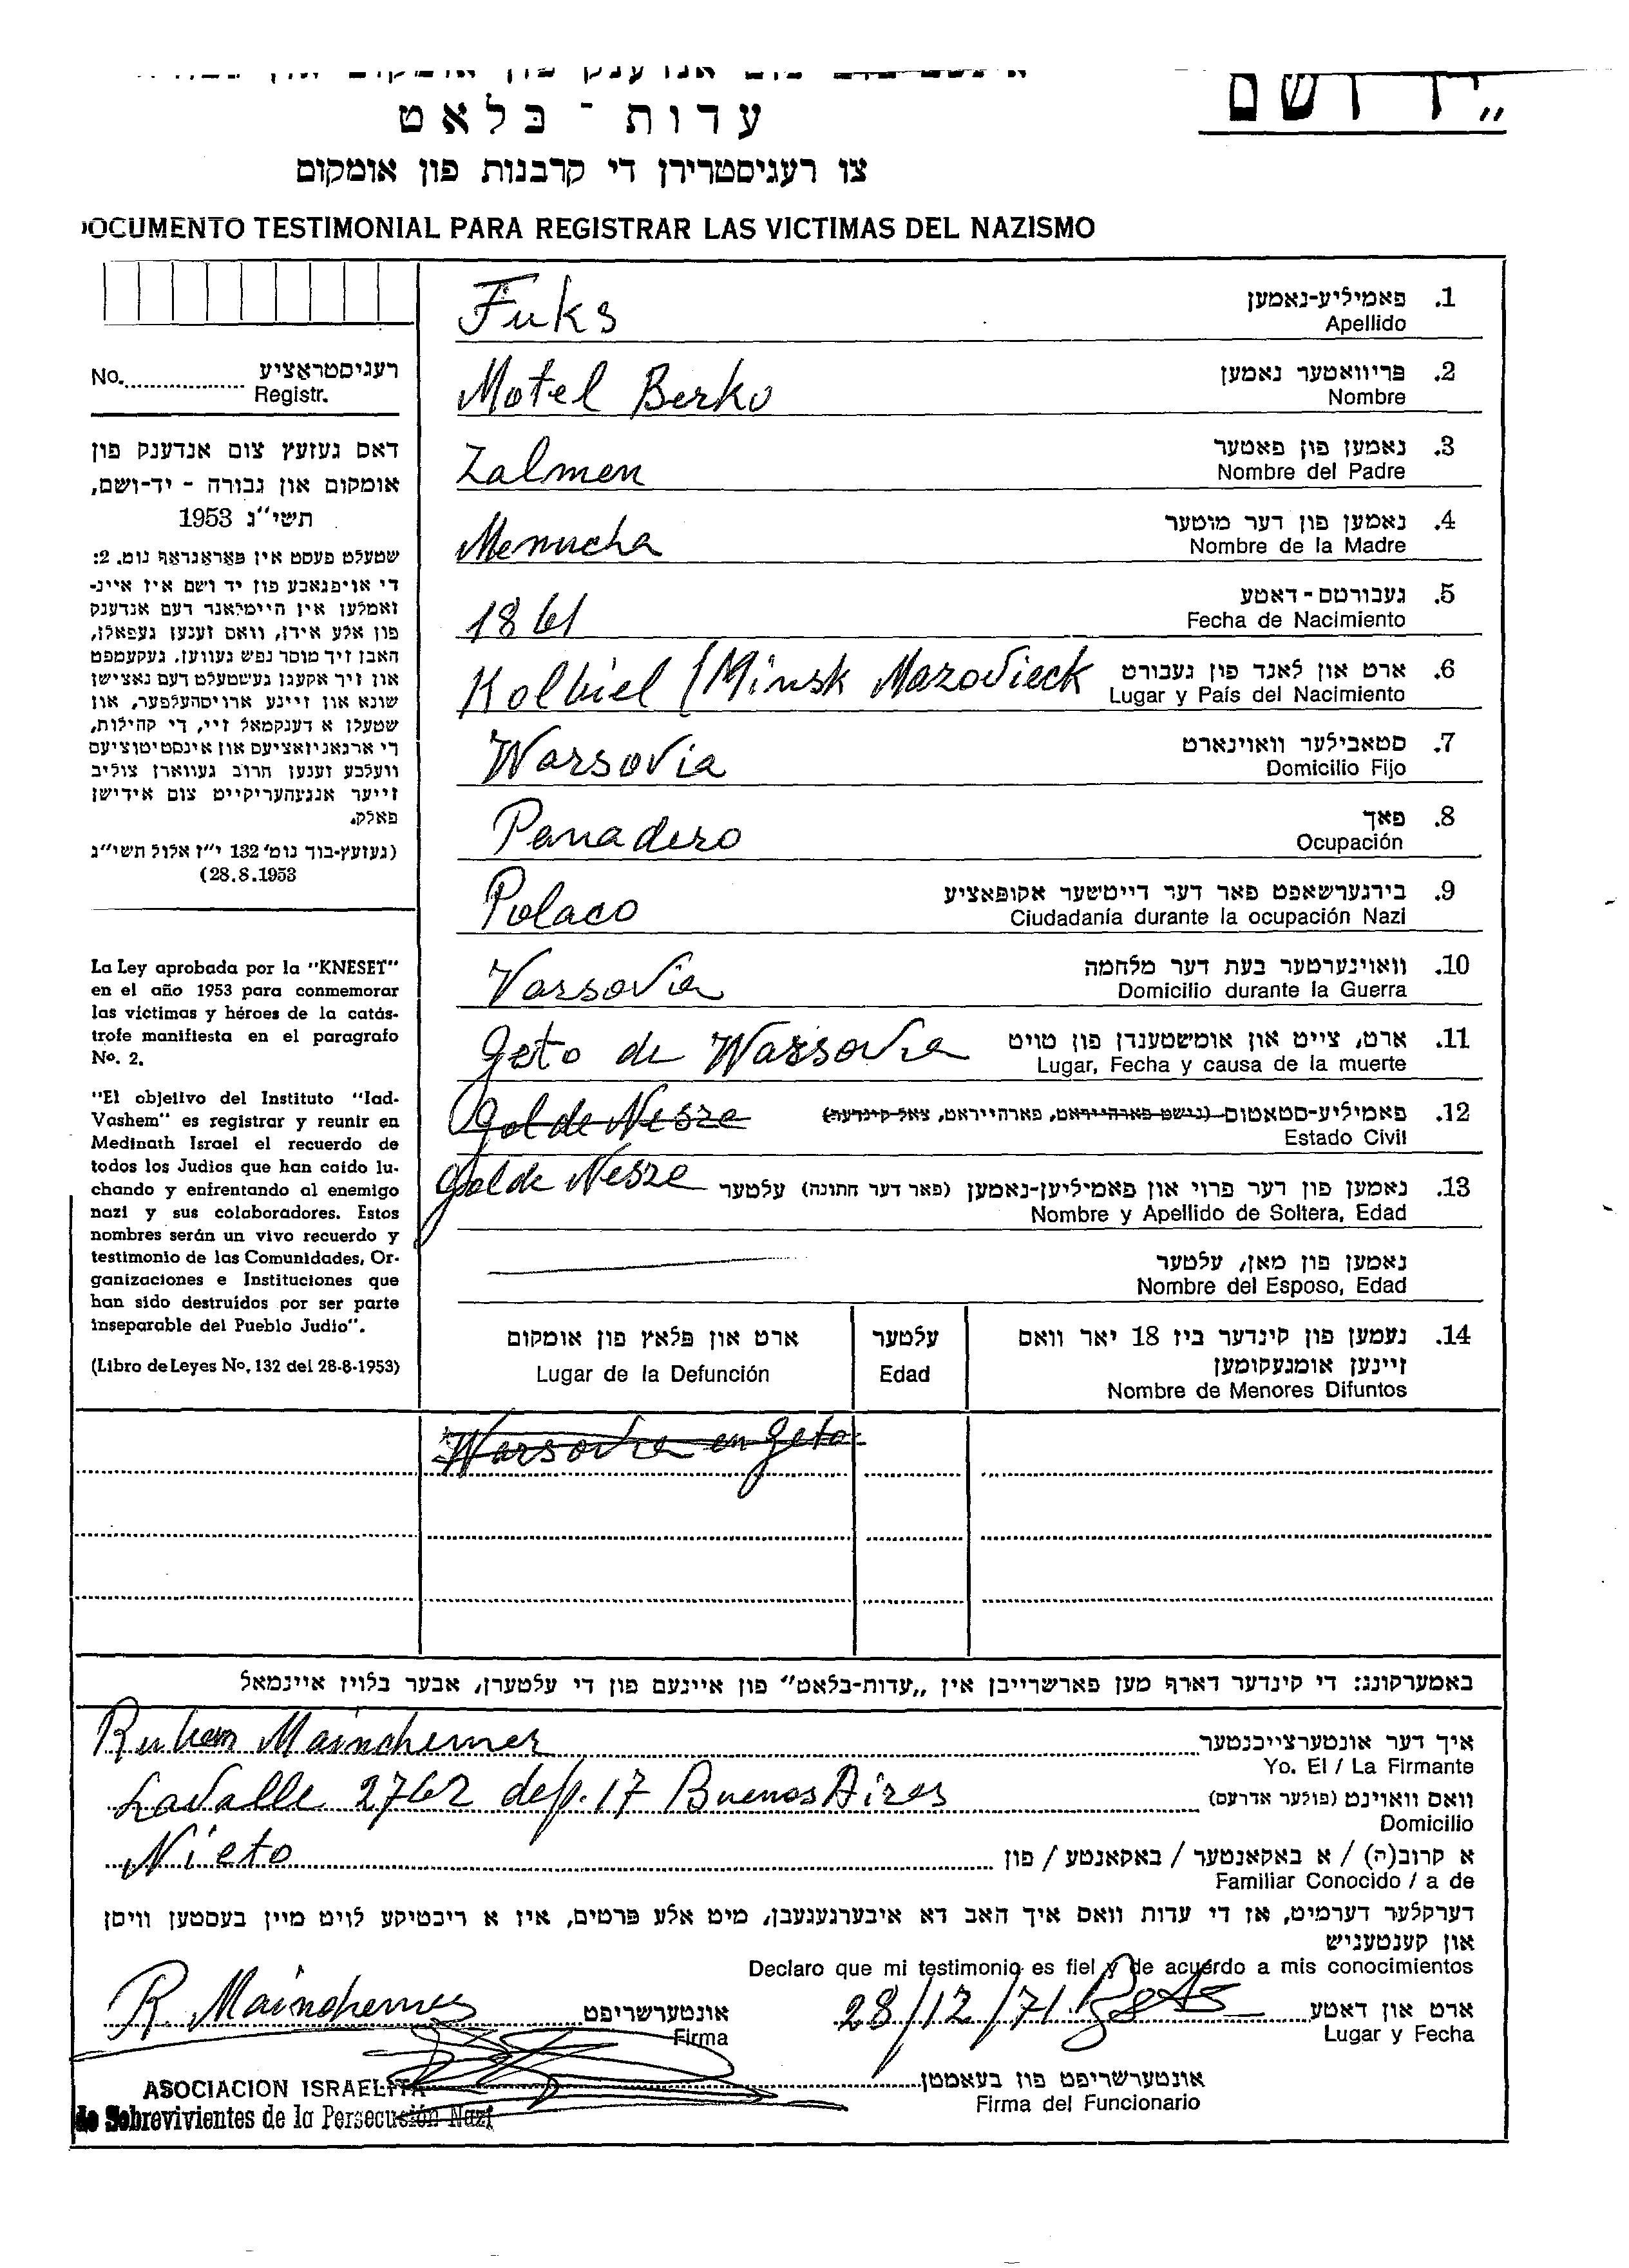 „יד ושם
עדות-בלאט
צו רעגיסטרירן די קרבנות פון אומקום
DOCUMENTO TESTIMONIAL PARA REGISTRAR LAS VICTIMAS DEL NAZISMO
רעגיסטראציע
No. Registr.
דאס געזעץ צום אנדענק פון
אומקום און גבורה - יד-ושם,
תשי״ג 1953
שטעלט פעסט אין פאראגראף נומ. 2:
די אויפגאבע פון יד ושם איז איינ-
זאמלען אין היימלאנד דעם אנדענק
פון אלע אידן, וואס זענען געפאלן,
האבן זיך מוסר נפש געווען. געקעמפט
און זיך אקעגן געשטעלט דעם נאצישן
שונא און זיינע ארויסהעלפער, און
שטעלן א דענקמאל זיי, די קהילות,
די ארגאניזאציעס און אינסטיטוציעס
וועלכע זענען חרוב געווארן צוליב
זייער אנגעהעריקייט צום אידישן
פאלק.
(געזעץ-בוך נומ׳ 132 י״ז אלול תשי״ג
28.8.1953)
La Ley aprobada por la "KNESET"
en el año 1953 para conmemorar
las víctimas y héroes de la catás-
trofe manifiesta en el paragrafo
No. 2.
"El objetivo del Instituto "Iad-
Vashem" es registrar y reunir en
Medinath Israel el recuerdo de
todos los Judios que han caído lu-
chando y enfrentando al enemigo
nazi y sus colaboradores. Estos
nombres serán un vivo recuerdo y
testimonio de las Comunidades, Or-
ganizaciones e Instituciones que
han sido destruidos por ser parte
inseparable del Pueblo Judio".
(Libro de Leyes No. 132 del 28-8-1953)
1. פאמיליע-נאמען
Apellido
Fuks
2. פריוואטער נאמען
Nombre
Motel Berko
3. נאמען פון פאטער
Nombre del Padre
Zalmen
4. נאמען פון דער מוטער
Nombre de la Madre
Menucha
5. געבורטס-דאטע
Fecha de Nacimiento
1861
6. ארט און לאנד פון געבורט
Lugar y País del Nacimiento
Kolbiel (Minsk Mazovieck
7. סטאבילער וואוינארט
Domicilio Fijo
Warsovia
8. פאך
Ocupación
Panadero
9. בירגערשאפט פאר דער דייטשער אקופאציע
Ciudadanía durante la ocupación Nazi
Polaco
10. וואוינערטער בעת דער מלחמה
Domicilio durante la Guerra
Varsovia
11. ארט, צייט און אומשטענדן פון טויט
Lugar, Fecha y causa de la muerte
Geto de Warsovia
12. פאמיליע-סטאטוס (נישט פארהייראט, פארהייראט, צאל קינדער)
Estado Civil
Golde Nesze
13. נאמען פון דער פרוי און פאמיליען-נאמען (פאר דער חתונה) עלטער
Nombre y Apellido de Soltera, Edad
Golde Nesze
נאמען פון מאן, עלטער
Nombre del Esposo, Edad
14. נעמען פון קינדער ביז 18 יאר וואס
זיינען אומגעקומען
Nombre de Menores Difuntos
עלטער
Edad
ארט און פלאץ פון אומקום
Lugar de la Defunción
Warsovia en geto
באמערקונג: די קינדער דארף מען פארשרייבן אין „עדות-בלאט״ פון איינעם פון די עלטערן, אבער בלויז איינמאל
איך דער אונטערצייכנטער
Yo. El / La Firmante
Ruben Mainchemer
וואס וואוינט (פולער אדרעס)
Domicilio
Lavalle 2762 dep. 17 Buenos Aires
א קרוב(ה) / א באקאנטער / באקאנטע / פון
Familiar Conocido / a de
Nieto
דערקלער דערמיט, אז די עדות וואס איך האב דא איבערגעגעבן, מיט אלע פרטים, איז א ריכטיקע לויט מיין בעסטען וויסן
און קענטעניש
Declaro que mi testimonio es fiel y de acuerdo a mis conocimientos
ארט און דאטע
Lugar y Fecha
28/12/71. Bs As
אונטערשריפט
Firma
R. Mainchemer
אונטערשריפט פון בעאמטן
Firma del Funcionario
ASOCIACION ISRAELITA
de Sobrevivientes de la Persecución Nazi